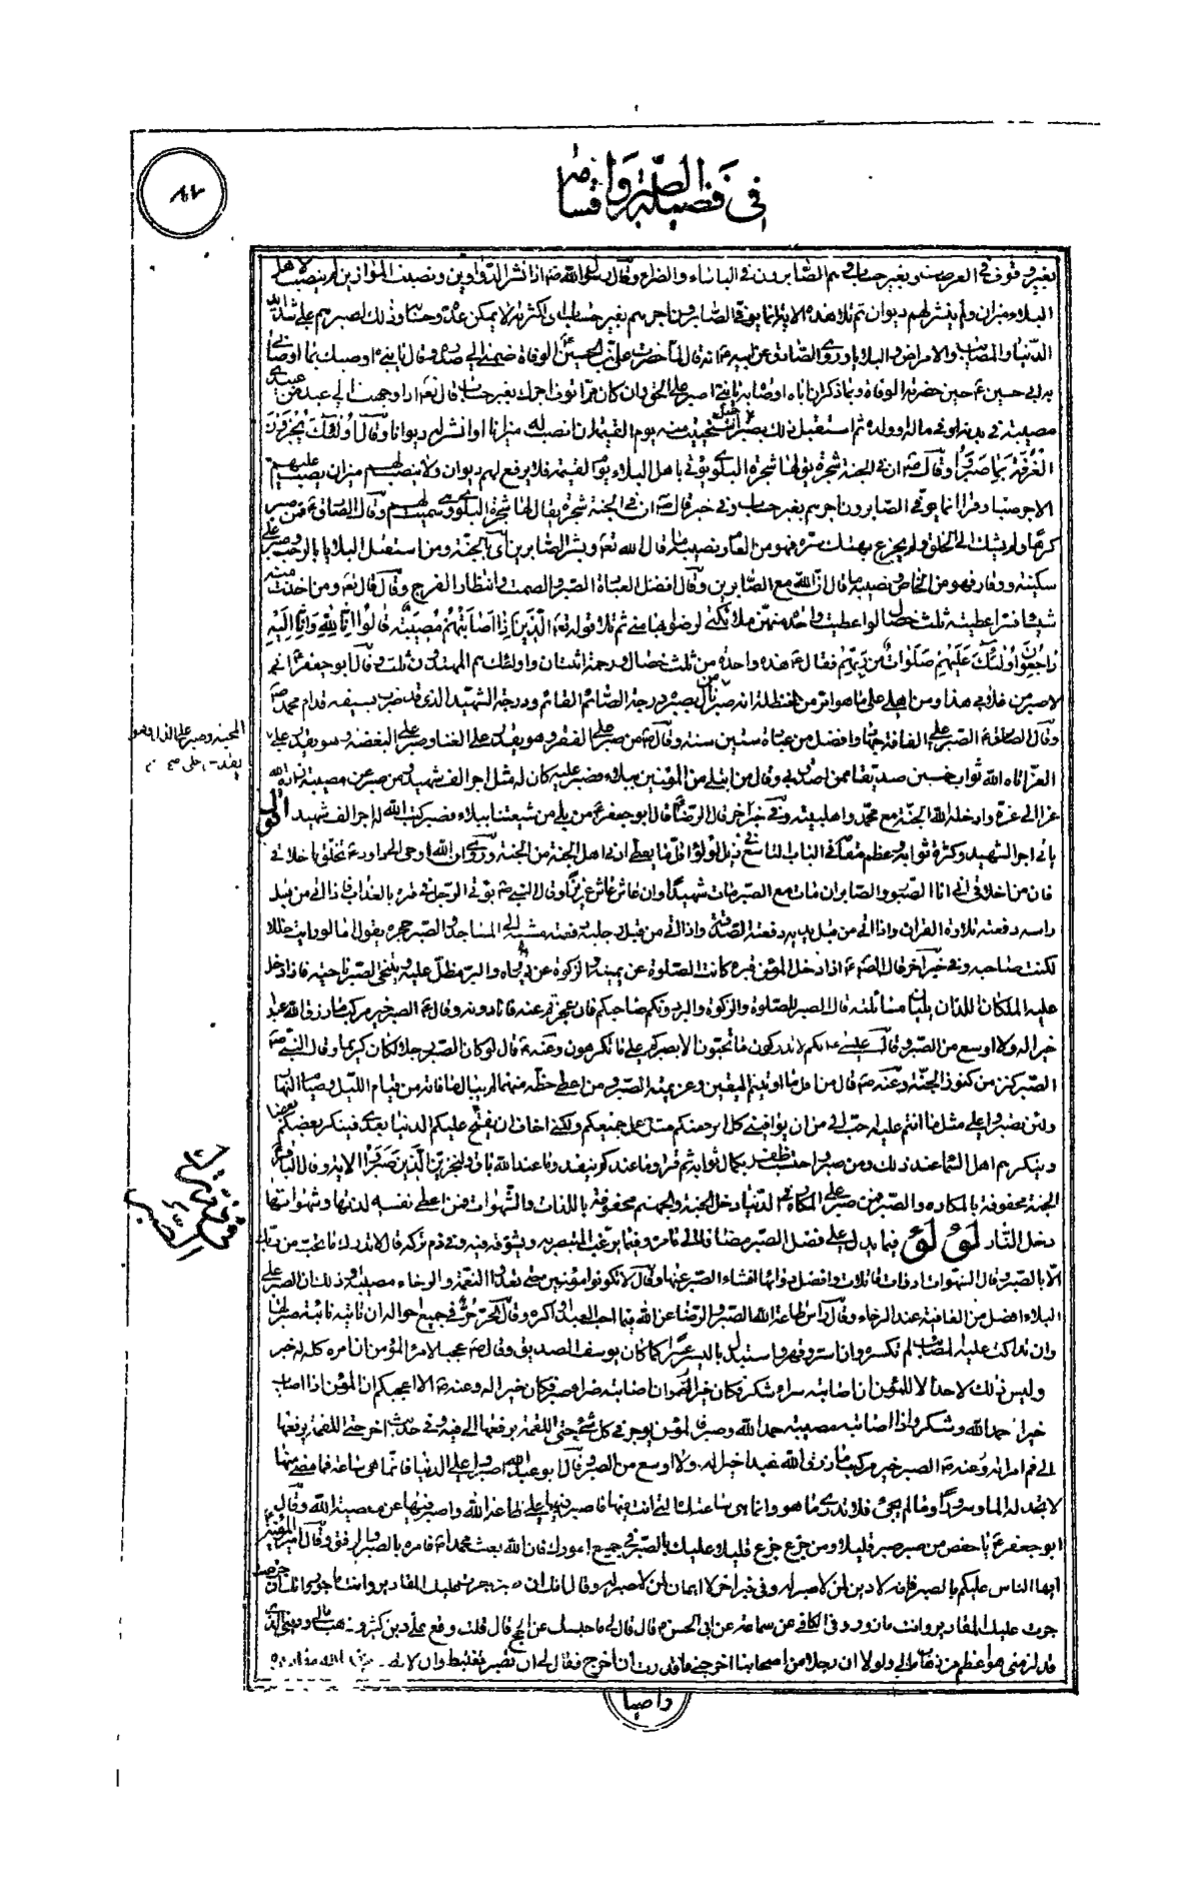 في فضيلة الصبر واقسامه
٨٧
بغير وقوف في العرصة وبغير حساب وهم الصابرون في الباساء والضراء وقال رسول الله ص اذا نشر الدواوين ونصبت الموازين لم ينصب لاهل
البلاء ميزان ولم ينشر لهم ديوان ثم تلا هذه الاية انما يوفى الصابرون اجرهم بغير حساب اي اكثر لا يمكن عده وحسابه وذلك لصبرهم على شدائد
الدنيا والمصائب والامراض والبلايا وروى الصادق عن ابيه ع انه قال لما حضرت علي بن الحسين الوفاة ضمني الى صدره وقال يا بني اوصيك بما اوصاني
به ابي حسين ع حين حضرته الوفاة وبما ذكر ان اباه اوصاه به يا بني اصبر على الحق وان كان مرا توف اجرك بغير حساب قال تعالى اذا وجهت الى عبد من عبيدي
مصيبة في بدنه او في ماله وولده ثم استقبل ذلك بصبر جميل استحييت منه يوم القيمة ان انصب له ميزانا او انشر له ديوانا وقال اولئك يجزون
الغرفة بما صبروا وقال ص ان في الجنة شجرة يقال لها شجرة البلوى يؤتى باهل البلاء يوم القيمة فلا يرفع لهم ديوان ولا ينصب لهم ميزان يصب عليهم
الاجر صبا وقرا انما يوفى الصابرون اجرهم بغير حساب وفي خبر قال ص ان في الجنة شجرة يقال لها شجرة البلوى وقال الصادق ع فمن صبر
كرها ولم يشك الى الخلق ولم يجزع بهتك ستره فهو من العام ونصيبه ما قال الله تعالى وبشر الصابرين اي بالجنة ومن استقبل البلايا بالرحب وصبر على
سكينة ووقار فهو من الخاص ونصيبه ما قال ان الله مع الصابرين وقال افضل العبادة الصبر والصمت وانتظار الفرج وقال قال تعالى ومن اخذت منه
شيئا قسرا اعطيته ثلث خصال لو اعطيت واحدة منهن ملائكتي لرضوا بها مني ثم تلا قوله تعالى الذين اذا اصابتهم مصيبة قالوا انا لله وانا اليه
راجعون اولئك عليهم صلوات من ربهم فقال ع هذه واحدة من ثلث خصال ورحمة اثنتان واولئك هم المهتدون ثلث وقال ابو جعفر ع اني
لاصبر من غلامي هذا ومن اهلي على ما هو امر من الحنظلة انه من صبر نال بصبره درجة الصائم القائم ودرجة الشهيد الذي قد ضرب بسيفه قدام محمد ص
وقال الصادق ع الصبر على الفاقة جهاد وافضل من عبادة ستين سنة وقال ص من صبر على الفقر وهو يقدر على الغنا وصبر على البغضة وهو يقدر على
المحبة وصبر على الذل وهو
يقدر على
العز اتاه الله ثواب خمسين صديقا ممن صدق بي وقال من ابتلي من المؤمنين ببلاء فصبر عليه كان له مثل اجر الف شهيد ومن صبر عن مصيبة زاده الله
عزا الى عزه وادخله الله الجنة مع محمد واهل بيته وفي خبر اخر قال الرضا قال ابو جعفر ع من بلي من شيعتنا ببلاء فصبر كتب الله له اجر الف شهيد اقول
ياتي اجر الشهيد وكثرة ثوابه وعظم مقامه في الباب التاسع في ذيل لؤلؤ اقل ما يعطى ادنى اهل الجنة من الجنة وروي ان الله اوحى الى داود ع تخلق باخلاقي
فان من اخلاقي اني انا الصبور والصابر ان مات مع الصبر مات شهيدا وان عاش عاش عزيزا وقال النبي ص يؤتى الرجل في قبره بالعذاب فاذا اتي من قبل
راسه دفعته تلاوة القران واذا اتي من قبل يديه دفعته الصدقة واذا اتي من قبل رجليه دفعه مشيه الى المساجد والصبر حجره يقول اما لو رايت خللا
لكنت صاحبه وفي خبر اخر قال الصادق ع اذا دخل المؤمن قبره كانت الصلوة عن يمينه والزكوة عن يساره والبر مظل عليه ويتنحى الصبر ناحية فاذا دخل
عليه الملكان اللذان يليان مسائلته قال الصبر للصلوة والزكوة والبر دونكم صاحبكم فان عجزتم عنه فانا دونه وقال ع الصبر خير مركب ما رزق الله عبدا
خيرا له ولا اوسع من الصبر وقال عيسى ع انكم لا تدركون ما تحبون الا بصبركم على ما تكرهون وعنه ص قال لو كان الصبر رجلا لكان كريما وقال النبي ص
الصبر كنز من كنوز الجنة وعنه ص قال من اقل ما اوتيتم اليقين وعزيمة الصبر ومن اعطي حظه منهما لم يبال ما فاته من قيام الليل وصيام النهار
ولئن تصبروا على مثل ما انتم عليه احب الي من ان يوافيني كل امرء منكم بمثل عمل جميعكم ولكني اخاف ان يفتح عليكم الدنيا بعدي فينكر بعضكم بعضا
وينكركم اهل السماء عند ذلك ومن صبر واحتسب ظفر بكمال ثوابه ثم قرا وما عندكم ينفد وما عند الله باق ولنجزين الذين صبروا الاية وقال الباقر ع
الجنة محفوفة بالمكاره والصبر فمن صبر على المكاره في الدنيا دخل الجنة وجهنم محفوفة باللذات والشهوات فمن اعطى نفسه لذتها وشهوتها
في فوائد الصبر
دخل النار لؤلؤ فيما يدل على فضل الصبر مضافا الى ما مر وفيما يرغب المتصبر به ويشوقه فيه وفي ذم تركه قال لا تدرك ما تحب من ربك
الا بالصبر
البلاء افضل من العافية عند الرخاء وقال راس طاعة الله الصبر والرضا عن الله فيما احب العبد او كره وقال الحر حر في جميع احواله ان نابته نائبة صبر لها
وان تداكت عليه المصائب لم تكسره وان اسر وقهر واستبدل باليسر عسرا كما كان يوسف الصديق وقال ص عجبا لامر المؤمن ان امره كله له خير
وليس ذلك لاحد الا للمؤمن ان اصابته سراء شكر فكان خيرا له وان اصابته ضراء صبر فكان خيرا له وعنه ص الا اعجبكم ان المؤمن اذا اصاب
خيرا حمد الله وشكر واذا اصابته مصيبة حمد الله وصبر فالمؤمن يوجر في كل شيء حتى اللقمة يرفعها الى فيه وفي حديث اخر حتى اللقمة يرفعها
الى فم امراته وعنه ص الصبر خير مركب ما رزق الله عبدا خيرا له ولا اوسع من الصبر وقال ابو عبد الله اصبروا على الدنيا فانما هي ساعة فما مضى منها
لا تجد له الما ولا سرورا وما لم يجئ فلا تدري ما هو وانما هي ساعتك التي انت فيها فاصبر فيها على طاعة الله واصبر فيها عن معصية الله وقال
ابو جعفر ع يا حفص من صبر صبر قليلا ومن جزع جزع قليلا عليك بالصبر في جميع امورك فان الله بعث محمدا ص فامره بالصبر والرفق وقال امير المؤمنين
ايها الناس عليكم بالصبر فانه لا دين لمن لا صبر له وفي خبر اخر لا ايمان لمن لا صبر له وقال انك ان صبرت جرت عليك المقادير وانت ماجور وانك ان جزعت
جرت عليك المقادير وانت مازور وفي الكافي عن سماعة عن ابي الحسن ع قال قال لي ما حبسك عن الحج قال قلت وقع علي دين كثير وذهب مالي وديني الذي
قد لزمني هو اعظم من ذهاب مالي ولولا ان رجلا من اصحابنا اخرجني ما قدرت ان اخرج فقال لي ان تصبر تغتبط وان لا
راضيا